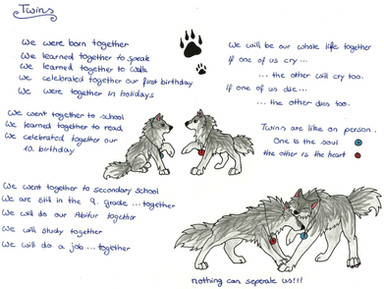 Twins
We were born together
We learned together to speak
We learned together to walk
We celebrated together our first birthday
We were together in holidays
We went together to school
We learned together to read
We celebrated together our
10. birthday
We went together to secondary school
We are still in the 9. grade ... together
We will do our Abitur together
We will study together
We will do a job ... together
We will be our whole life together
If one of us cry...
... the other will cry too.
If one of us die...
... the other dies too.
Twins are like an person.
One is the soul
the other is the heart
nothing can seperate us!!!